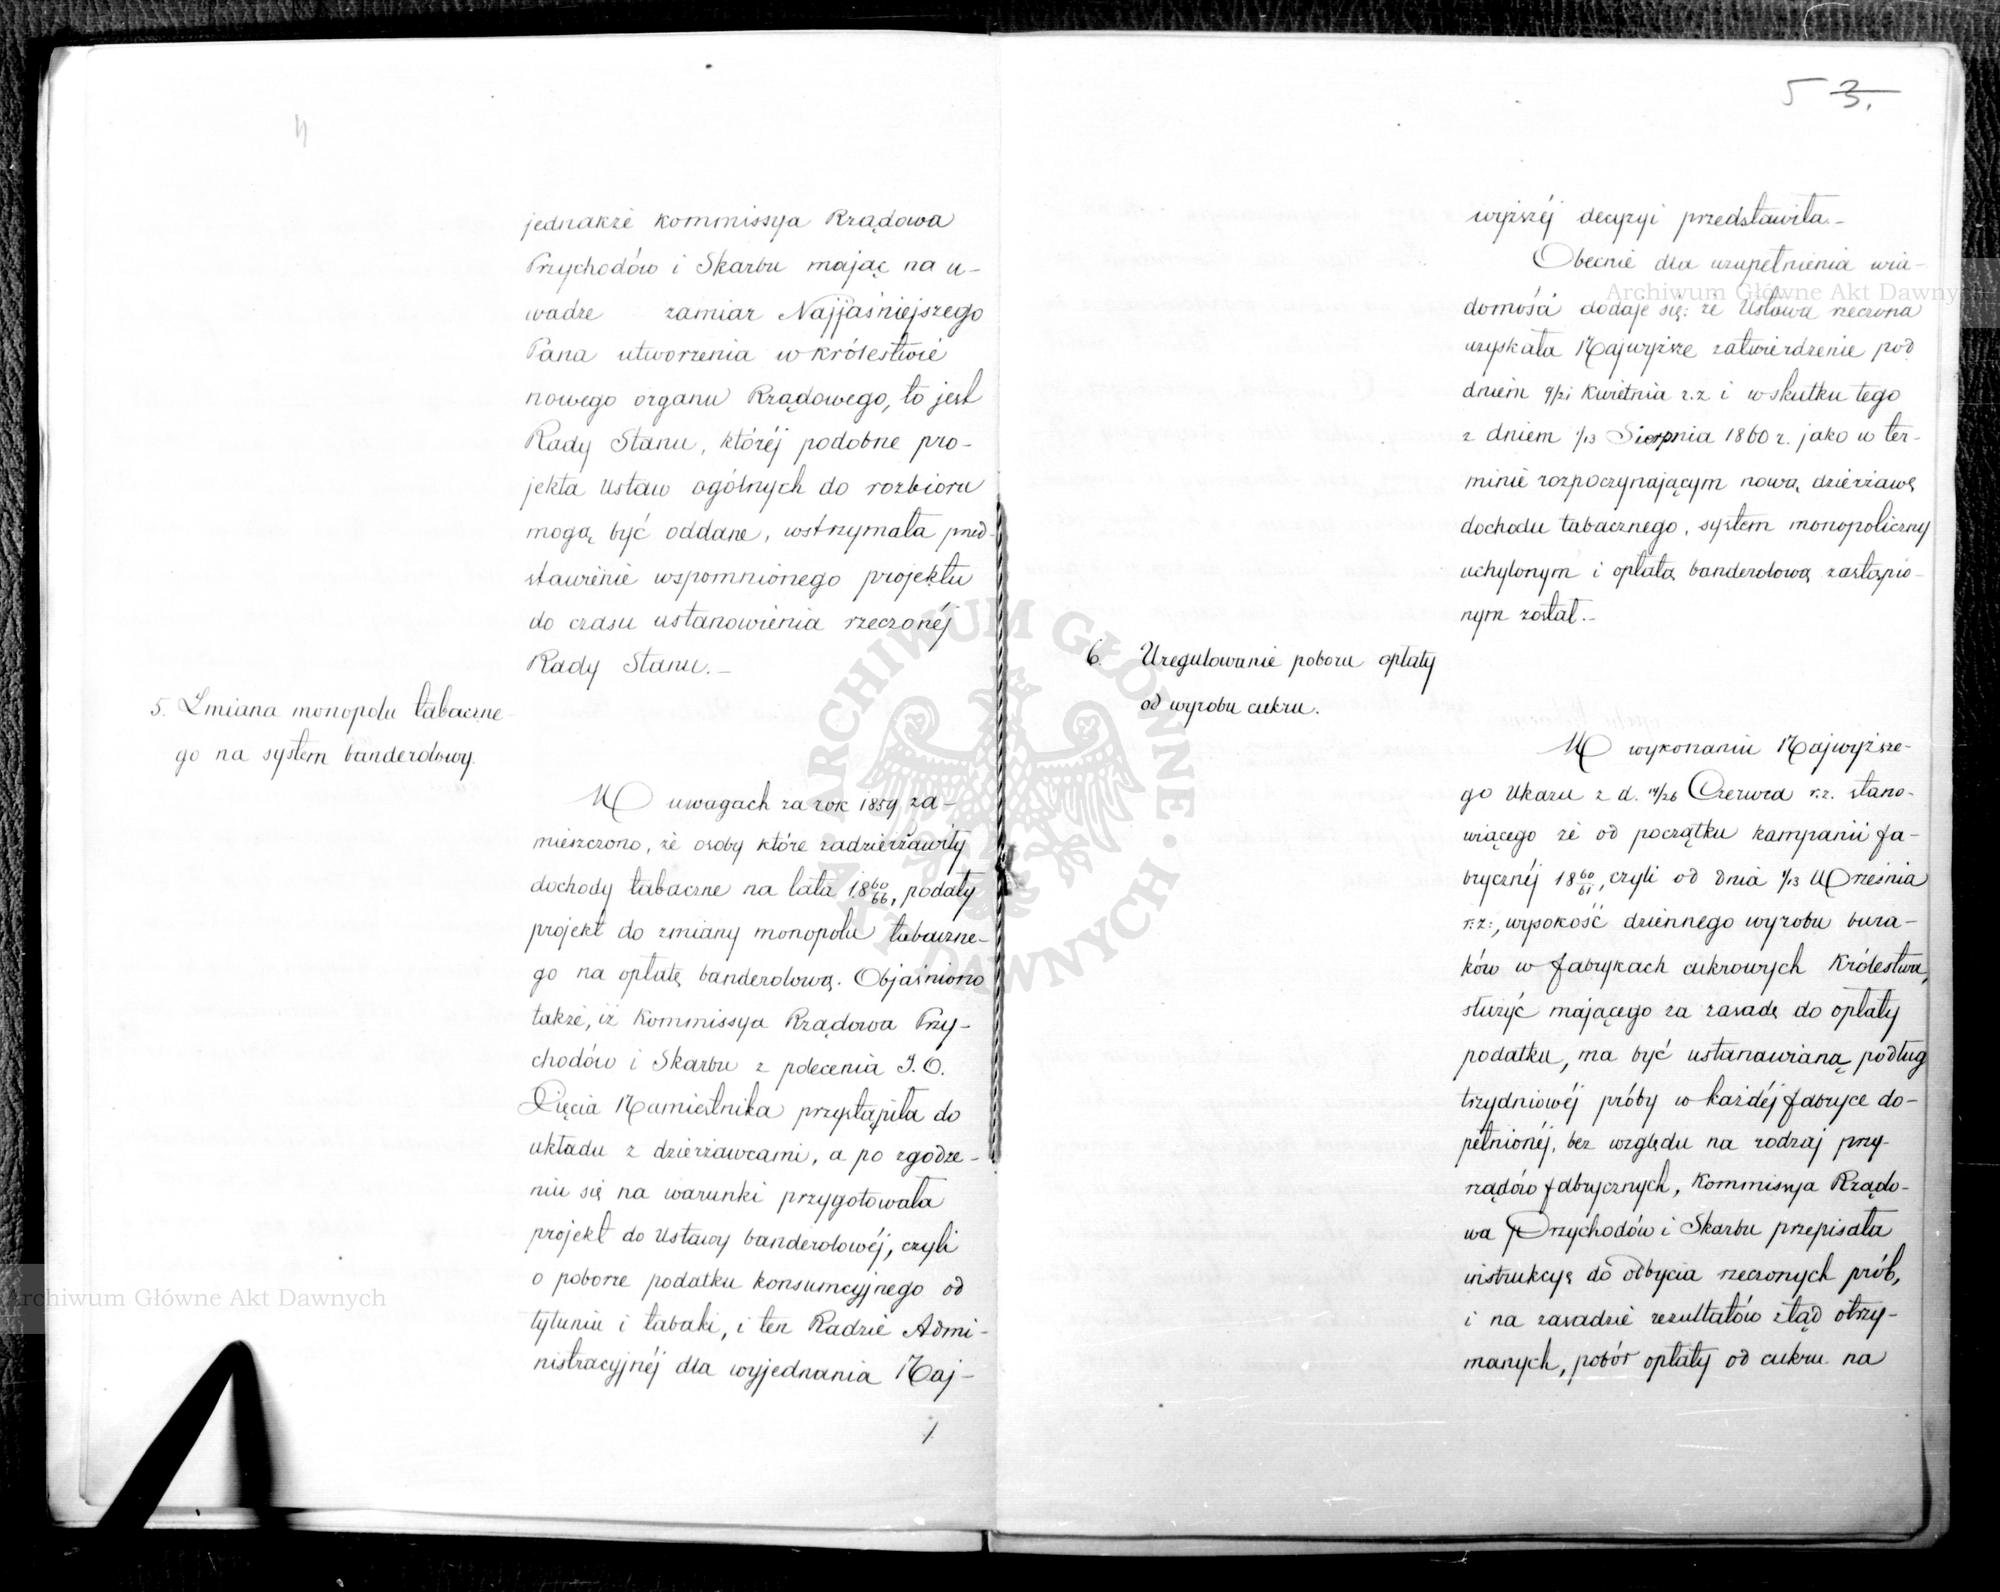 4
jednakże Kommissya Rządowa
Przychodów i Skarbu mając na u-
wadze zamiar Najjaśniejszego
Pana utworzenia w Królestwie
nowego organu Rządowego, to jest
Rady Stanu, któréj podobne pro-
jekta Ustaw ogólnych do rozbioru
mogą być oddane, wstrzymała przed-
stawienie wspomnionego projektu
do czasu ustanowienia rzeczonéj
Rady Stanu.-
5. Zmiana monopolu tabaczne-
go na system banderolowy.
W uwagach za rok 1859 za-
mieszczono, że osoby które zadzierżawiły
dochody tabaczne na lata 1860/66, podały
projekt do zmiany monopolu tabaczne-
go na opłatę banderolową. Objaśniono
także, iż Kommissya Rządowa Przy-
chodów i Skarbu z polecenia J. O.
Xięcia Namiestnika przystąpiła do
układu z dzierżawcami, a po zgodze-
niu się na warunki przygotowała
projekt do Ustawy banderolowéj, czyli
o poborze podatku konsumcyjnego od
tytuniu i tabaki, i ten Radzie Admi-
nistracyjnéj dla wyjednania Naj-
5 3.
wyższéj decyzyi przedstawiła.-
Obecnie dla uzupełnienia wia-
domości dodaje się: że Ustawa rzeczona
uzyskała Najwyższe zatwierdzenie pod
dniem 9/21 Kwietnia r.z i w skutku tego
z dniem 1/13 Sierpnia 1860 r. jako w ter-
minie rozpoczynającym nową dzierżawę
dochodu tabacznego, system monopoliczny
uchylonym i opłatą banderolową zastąpio-
nym został.-
6. Uregulowanie poboru opłaty
od wyrobu cukru.
W wykonaniu Najwyższe-
go Ukazu z d. 14/26 Czerwca r.z. stano-
wiącego że od początku kampanii fa-
brycznéj 1860/61, czyli od dnia 1/13 Września
r.z:, wysokość dziennego wyrobu bura-
ków w fabrykach cukrowych Królestwa,
służyć mającego za zasadę do opłaty
podatku, ma być ustanawianą podług
trzydniowéj próby w każdéj fabryce do-
pełnionéj, bez względu na rodzaj przy-
rządów fabrycznych, Kommissya Rządo-
wa Przychodów i Skarbu przepisała
instrukcyę do odbycia rzeczonych prób,
i na zasadzie rezultatów ztąd otrzy-
manych, pobór opłaty od cukru na
Archiwum Główne Akt Dawnych
Archiwum Główne Akt Dawnych
ARCHIWUM GŁÓWNE AKT DAWNYCH